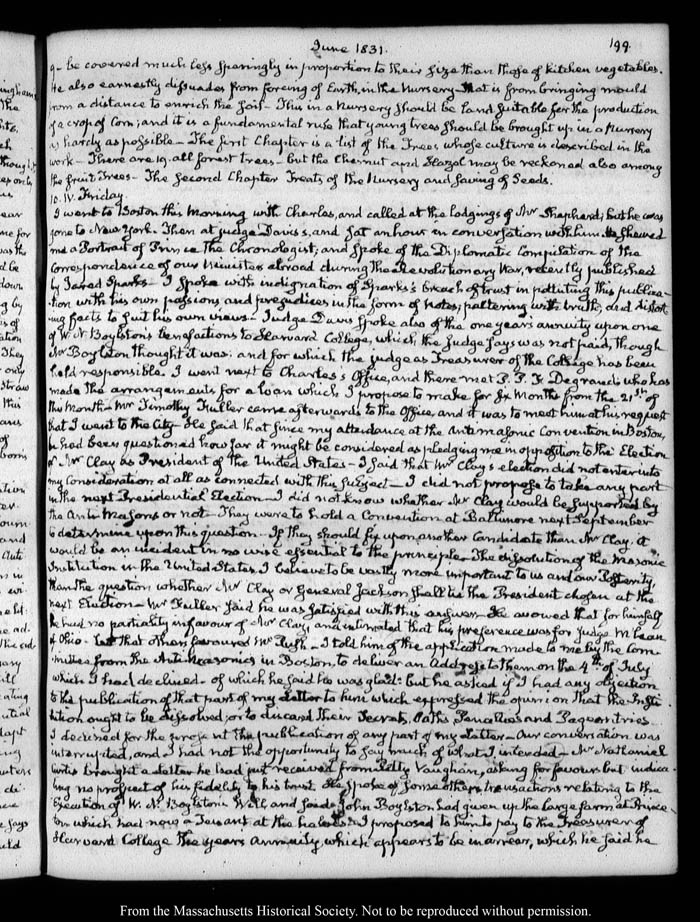 June 1831. 199
9 - be covered much less sparingly in proportion to their size than those of kitchen vegetables.
He also earnestly dissuades from forcing of Earth, in the Nursery - that is from bringing mould
from a distance to enrich the soil - This in a Nursery should be land suitable for the production
of a crop of Corn; and it is a fundamental rule that young trees should be brought up in a Nursery
as hardy as possible - The first Chapter is a list of the Trees, whose culture is described in the
work - There are 19. all forest trees - but the Chesnut and Hazel may be reckoned also among
the fruit Trees - The second Chapter Treats of the Nursery and saving of Seeds.
10. IV. Friday
I went to Boston this Morning with Charles, and called at the lodgings of Mr Shephard; but he was
gone to New York. Then at judge Davis's, and sat an hour in conversation with him. He shewed
me a Portrait of Prince The Chronologist; and spoke of the Diplomatic Compilation of the
Correspondence of our Ministers abroad during the Revolutionary War, recently published
by Jared Sparks - I spoke with indignation of Sparks's breach of trust in polluting this publica-
tion with his own passions and prejudices in the form of Notes; paltering with truth, and distort-
ing facts to suit his own views - Judge Davis spoke also of the one years annuity upon one
of W. N. Boylston's benefactions to Harvard College, which the Judge says was not paid, though
Mr Boylston thought it was: and for which the judge as Treasurer of the College has been
held responsible. I went next to Charles's Office, and there met P. P. F. Degrand; who has
made the arrangements for a loan which I propose to make for six Months from the 21st of
this Month - Mr Timothy Fuller came afterwards to the Office, and it was to meet him at his request
that I went to the City - He said that since my attendance at the Antimasonic Convention in Boston,
he had been questioned how far it might be considered as pledging me in opposition to the Election
of Mr Clay as President of the United States - I said that Mr Clay's election did not enter into
my consideration at all as connected with this subject - I did not propose to take any part
in the next Presidential Election - I did not know whether Mr Clay would be supported by
the Anti-Masons or not - They were to hold a Convention at Baltimore next September
to determine upon this question - If they should fix upon another candidate than Mr Clay, it
would be an incident in no wise essential to the principle - The dissolution of the Masonic
Institution in the United States I believe to be vastly more important to us and our Posterity,
than the question whether Mr Clay or General Jackson shall be the President chosen at the
next Election - Mr Fuller said he was satisfied with this answer - He avowed that for himself
he had no partiality in favour of Mr Clay, and intimated that his preference was for Judge M'Lean
of Ohio - but that others favoured Mr Rush - I told him of the application made to me by the Com-
mittee from the Anti-Masonics in Boston, to deliver an Address to them on the 4th of July
which I had declined - of which he said he was glad: but he asked if I had any objection
to the publication of that part of my Letter to him which expressed the opinion that the Insti-
tution ought to be dissolved, or to discard their Secrets, Oaths Penalties and Pageantries
I declined for the present the publication of any part of my Letter - Our conversation was
interrupted, and I had not the opportunity to say much of what I intended - Mr Nathaniel
Curtis brought a Letter he had just received from Petty Vaughan, asking for favours but indica-
ting no prospect of his fidelity to his trust. He spoke of some other transactions relating to the
Execution of W. N. Boylston's Will, and said John Boylston had given up the large farm at Prince-
ton which had now a Tenant at the halves - I proposed to him to pay to the Treasurer of
Harvard College the years Annuity, which appears to be in arrear, which he said he
From the Massachusetts Historical Society. Not to be reproduced without permission.